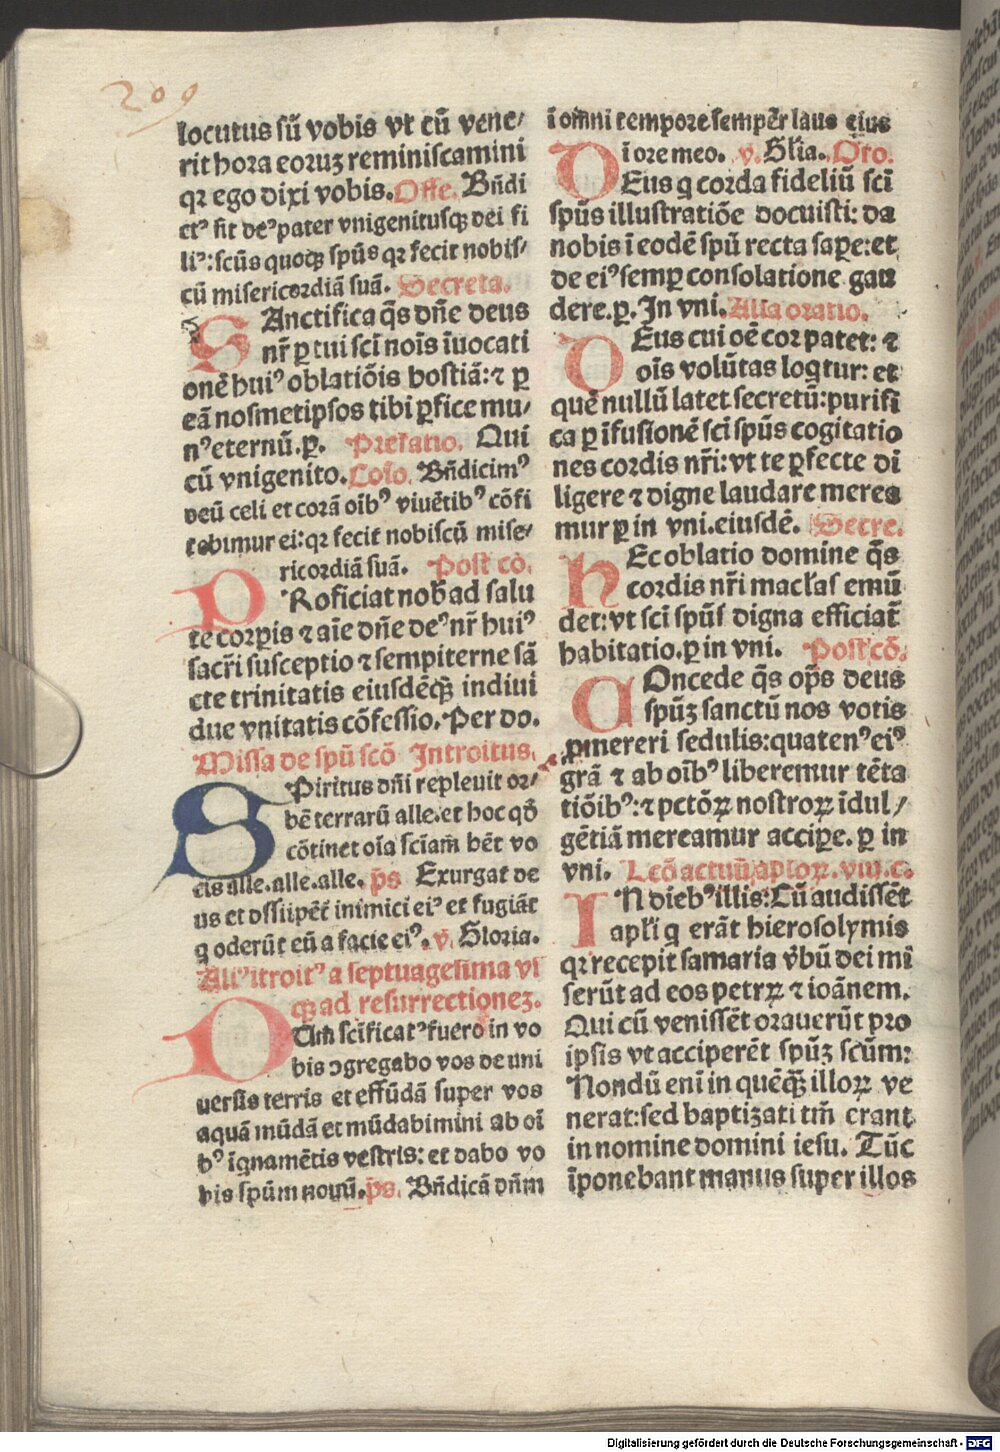 209
locutus sū vobis vt cū vene/
rit hora eoruꝫ reminiscamini
qꝛ ego dixi vobis. Offe. Bn̄di
ctꝰ sit deꝰ pater vnigenitusqꝫ dei fi
liꝰ: scūs quoqꝫ spūs qꝛ fecit nobis/
cū misericordiā suā. Secreta.
SAnctifica q̄s dn̄e deus
nr̄ ꝑ tui scī noīs īuocati
onē huiꝰ oblatiōis hostiā: ⁊ ꝑ
eā nosmetipsos tibi ꝑfice mu/
nꝰ eternū. ꝑ. Prefatio. Qui
cū vnigenito. Cōio. Bn̄dicimꝰ
deū celi et corā oībꝰ viuētibꝰ cōfi
tebimur ei: qꝛ fecit nobiscū mise/
ricordiā suā. Post cō.
PRoficiat nob̄ ad salu
te corꝑis ⁊ aīe dn̄e deꝰ nr̄ huiꝰ
sacr̄i susceptio ⁊ sempiterne sā
cte trinitatis eiusdēqꝫ indiui
due vnitatis cōfessio. Per do.
Missa de spū scō Introitus.
SPiritus dn̄i repleuit or/
bē terrarū alle. et hoc qđ
cōtinet oīa sciam̄ hēt vo
cis alle. alle. alle. p̄s Exurgat de
us et dissipēt̄ inimici eiꝰ et fugiāt
q oderūt eū a facie eiꝰ. v. Gloria.
Aliꝰ itroitꝰ a septuagesima vs
qꝫ ad resurrectioneꝫ.
DUm sc̄ificatꝰ fuero in vo
bis ꝯgregabo vos de uni
uersis terris et effūdā super vos
aquā mūdā et mūdabimini ab oī
bꝰ īgnamētis vestris: et dabo vo
bis spūm nouū. p̄s. Bn̄dicā dn̄m
ī omni tempore semper̄ laus eius
ī ore meo. v. Gl̄ia. Or̄o.
DEus q corda fideliū scī
spūs illustratiōe docuisti: da
nobis ī eodē spū recta saꝑe: et
de eiꝰ semꝑ consolatione gau
dere. ꝑ. In vni. Alia oratio.
DEus cui oē cor patet: ⁊
oīs volūtas loqtur: et
quē nullū latet secretū: purifi
ca ꝑ īfusionē scī spūs cogitatio
nes cordis nr̄i: vt te ꝑfecte di
ligere ⁊ digne laudare merea
mur ꝑ in vni. eiusdē. Secre.
HEc oblatio domine q̄s
cordis nr̄i macl̄as emū
det: vt scī spūs digna efficiat̄
habitatio. ꝑ in vni. Post cō.
COncede q̄s op̄s deus
spūꝫ sanctū nos votis
ꝓmereri sedulis: quatenꝰ eiꝰ
grā ⁊ ab oībꝰ liberemur tēta
tiōibꝰ: ⁊ pctōꝝ nostroꝝ īdul/
gētiā mereamur acciꝑe. ꝑ in
vni. Lcō actuū aplōꝝ. viij. c.
IN diebꝰ illis: Cū audissēt
apl̄i q erāt hierosolymis
qꝛ recepit samaria v̄bū dei mi
serūt ad eos petrꝝ ⁊ ioānem.
Qui cū venissēt orauerūt pro
ipsis vt acciperēt spūꝫ scūm:
Nondū enī in quēqꝫ illoꝝ ve
nerat: sed baptizati tm̄ erant
in nomine domini iesu. Tūc
īponebant manus super illos
Digitalisierung gefördert durch die Deutsche Forschungsgemeinschaft - DFG